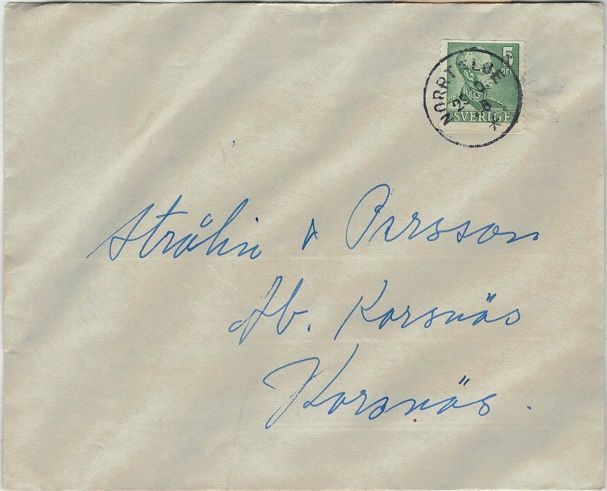 5
ÖRE
SVERIGE
NORRTÄLJE
Stråhin & Persson
Ab. Korsnäs
Korsnäs.